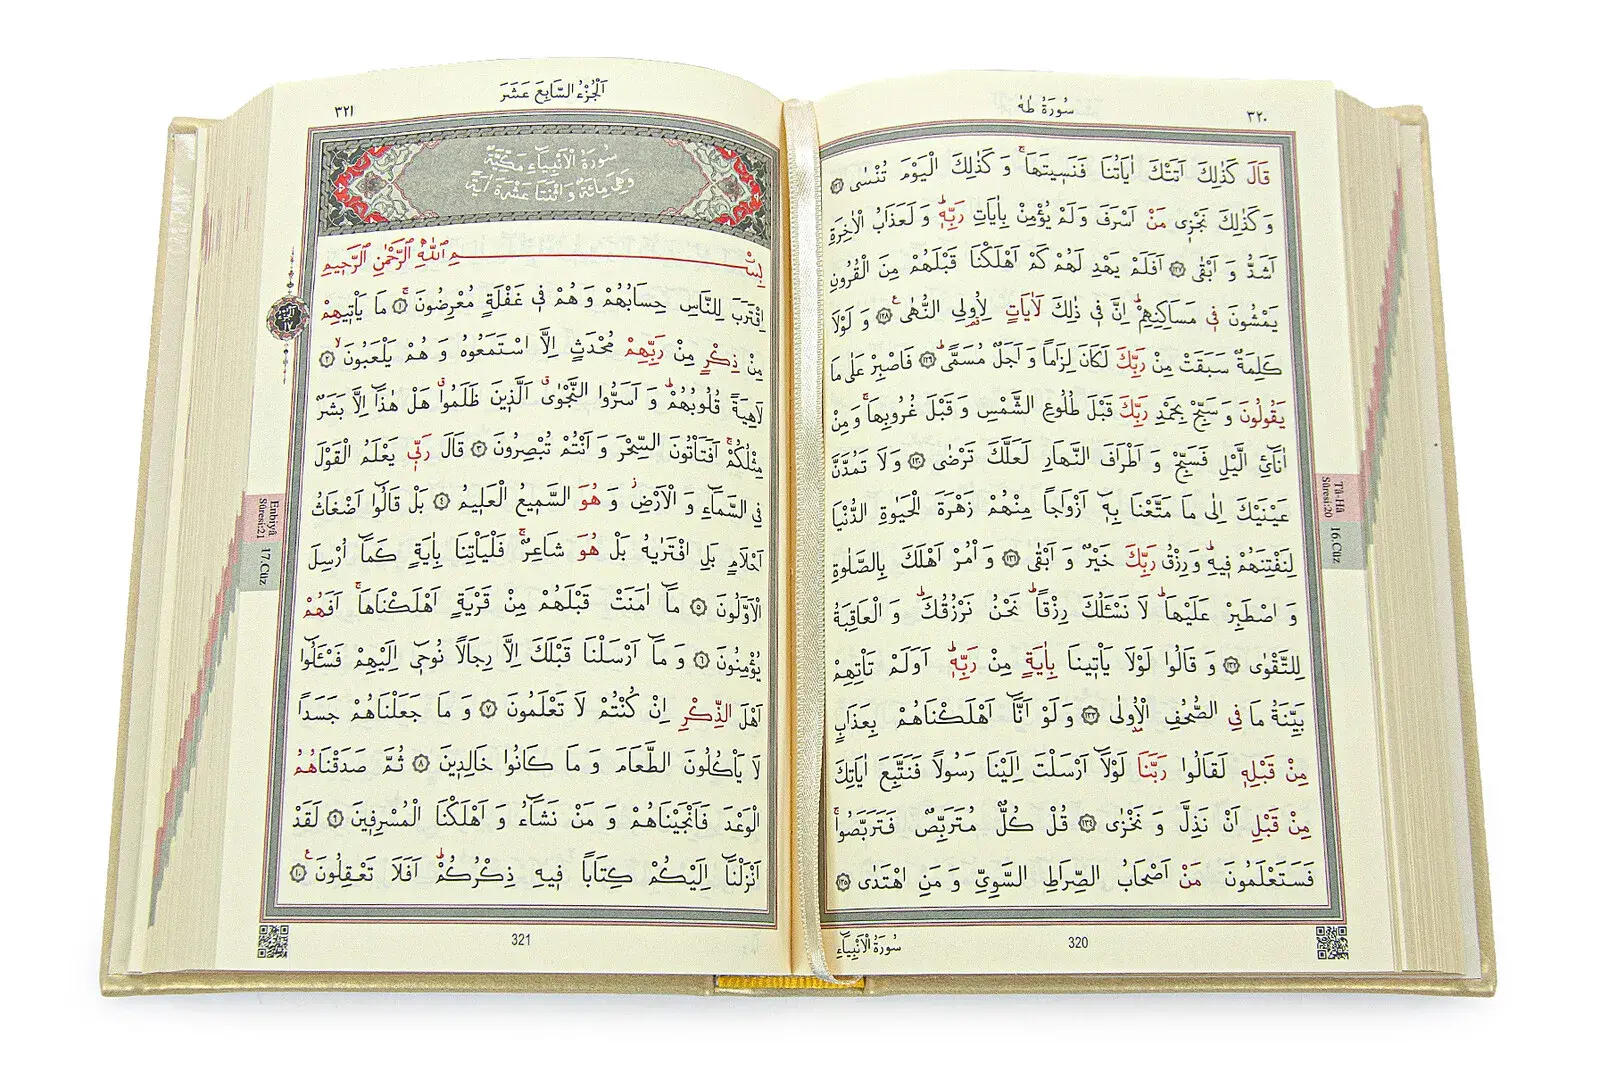 سُورَةُ طٰهٰ
٣٢٠
قَالَ كَذٰلِكَ اَتَتْكَ اٰيَاتُنَا فَنَسٖيتَهَاۚ وَ كَذٰلِكَ الْيَوْمَ تُنْسٰى ﴿١٢٦﴾
وَ كَذٰلِكَ نَجْزٖى مَنْ اَسْرَفَ وَ لَمْ يُؤْمِنْ بِاٰيَاتِ رَبِّهٖؕ وَ لَعَذَابُ الْاٰخِرَةِ
اَشَدُّ وَ اَبْقٰى ﴿١٢٧﴾ اَفَلَمْ يَهْدِ لَهُمْ كَمْ اَهْلَكْنَا قَبْلَهُمْ مِنَ الْقُرُونِ
يَمْشُونَ فٖى مَسَاكِنِهِمْؕ اِنَّ فٖى ذٰلِكَ لَاٰيَاتٍ لِاُولِى النُّهٰىࣖ ﴿١٢٨﴾ وَ لَوْلَا
كَلِمَةٌ سَبَقَتْ مِنْ رَبِّكَ لَكَانَ لِزَاماً وَ اَجَلٌ مُسَمًّىؕ ﴿١٢٩﴾ فَاصْبِرْ عَلٰى مَا
يَقُولُونَ وَ سَبِّحْ بِحَمْدِ رَبِّكَ قَبْلَ طُلُوعِ الشَّمْسِ وَ قَبْلَ غُرُوبِهَاۚ وَ مِنْ
اٰنَآئِ الَّيْلِ فَسَبِّحْ وَ اَطْرَافَ النَّهَارِ لَعَلَّكَ تَرْضٰى ﴿١٣٠﴾ وَ لَا تَمُدَّنَّ
عَيْنَيْكَ اِلٰى مَا مَتَّعْنَا بِهٖٓ اَزْوَاجاً مِنْهُمْ زَهْرَةَ الْحَيٰوةِ الدُّنْيَا
لِنَفْتِنَهُمْ فٖيهِؕ وَ رِزْقُ رَبِّكَ خَيْرٌ وَ اَبْقٰى ﴿١٣١﴾ وَ أْمُرْ اَهْلَكَ بِالصَّلٰوةِ
وَ اصْطَبِرْ عَلَيْهَاؕ لَا نَسْـَٔلُكَ رِزْقاًؕ نَحْنُ نَرْزُقُكَؕ وَ الْعَاقِبَةُ
لِلتَّقْوٰى ﴿١٣٢﴾ وَ قَالُوا لَوْلَا يَأْتٖينَا بِاٰيَةٍ مِنْ رَبِّهٖؕ اَوَلَمْ تَأْتِهِمْ
بَيِّنَةُ مَا فِى الصُّحُفِ الْاُولٰى ﴿١٣٣﴾ وَ لَوْ اَنَّٓا اَهْلَكْنَاهُمْ بِعَذَابٍ
مِنْ قَبْلِهٖ لَقَالُوا رَبَّنَا لَوْلَٓا اَرْسَلْتَ اِلَيْنَا رَسُولاً فَنَتَّبِعَ اٰيَاتِكَ
مِنْ قَبْلِ اَنْ نَذِلَّ وَ نَخْزٰى ﴿١٣٤﴾ قُلْ كُلٌّ مُتَرَبِّصٌ فَتَرَبَّصُواۚ
فَسَتَعْلَمُونَ مَنْ اَصْحَابُ الصِّرَاطِ السَّوِىِّ وَ مَنِ اهْتَدٰى ﴿١٣٥﴾
سُورَةُ الْاَنْبِيَٓاءِ
320
Tâ-Hâ
Sûresi:20
16.Cüz
اَلْجُزْءُ السَّابِعَ عَشَرَ
٣٢١
سُورَةُ الْاَنْبِيَٓاءِ مَكِّيَّةٌ
وَهِىَ مِائَةٌ وَ اثْنَتَا عَشْرَةَ اٰيَةً
بِسْمِ اللّٰهِ الرَّحْمٰنِ الرَّحٖيمِ
اِقْتَرَبَ لِلنَّاسِ حِسَابُهُمْ وَ هُمْ فٖى غَفْلَةٍ مُعْرِضُونَۚ ﴿١﴾ مَا يَأْتٖيهِمْ
مِنْ ذِكْرٍ مِنْ رَبِّهِمْ مُحْدَثٍ اِلَّا اسْتَمَعُوهُ وَ هُمْ يَلْعَبُونَۙ ﴿٢﴾
لَاهِيَةً قُلُوبُهُمْؕ وَ اَسَرُّوا النَّجْوٰىࣗ الَّذٖينَ ظَلَمُواࣗ هَلْ هٰذَٓا اِلَّا بَشَرٌ
مِثْلُكُمْۚ اَفَتَأْتُونَ السِّحْرَ وَ اَنْتُمْ تُبْصِرُونَ ﴿٣﴾ قَالَ رَبّٖى يَعْلَمُ الْقَوْلَ
فِى السَّمَٓاءِ وَ الْاَرْضِؗ وَ هُوَ السَّمٖيعُ الْعَلٖيمُ ﴿٤﴾ بَلْ قَالُٓوا اَضْغَاثُ
اَحْلَامٍ بَلِ افْتَرٰيهُ بَلْ هُوَ شَاعِرٌۚ فَلْيَأْتِنَا بِاٰيَةٍ كَمَٓا اُرْسِلَ
الْاَوَّلُونَ ﴿٥﴾ مَٓا اٰمَنَتْ قَبْلَهُمْ مِنْ قَرْيَةٍ اَهْلَكْنَاهَاۚ اَفَهُمْ
يُؤْمِنُونَ ﴿٦﴾ وَ مَٓا اَرْسَلْنَا قَبْلَكَ اِلَّا رِجَالاً نُوحٖٓى اِلَيْهِمْ فَسْـَٔلُٓوا
اَهْلَ الذِّكْرِ اِنْ كُنْتُمْ لَا تَعْلَمُونَ ﴿٧﴾ وَ مَا جَعَلْنَاهُمْ جَسَداً
لَا يَأْكُلُونَ الطَّعَامَ وَ مَا كَانُوا خَالِدٖينَ ﴿٨﴾ ثُمَّ صَدَقْنَاهُمُ
الْوَعْدَ فَاَنْجَيْنَاهُمْ وَ مَنْ نَشَٓاءُ وَ اَهْلَكْنَا الْمُسْرِفٖينَ ﴿٩﴾ لَقَدْ
اَنْزَلْنَٓا اِلَيْكُمْ كِتَاباً فٖيهِ ذِكْرُكُمْؕ اَفَلَا تَعْقِلُونَࣖ ﴿١٠﴾
321
اَلْجُزْءُ
١٧
Enbiyâ
Sûresi:21
17.Cüz